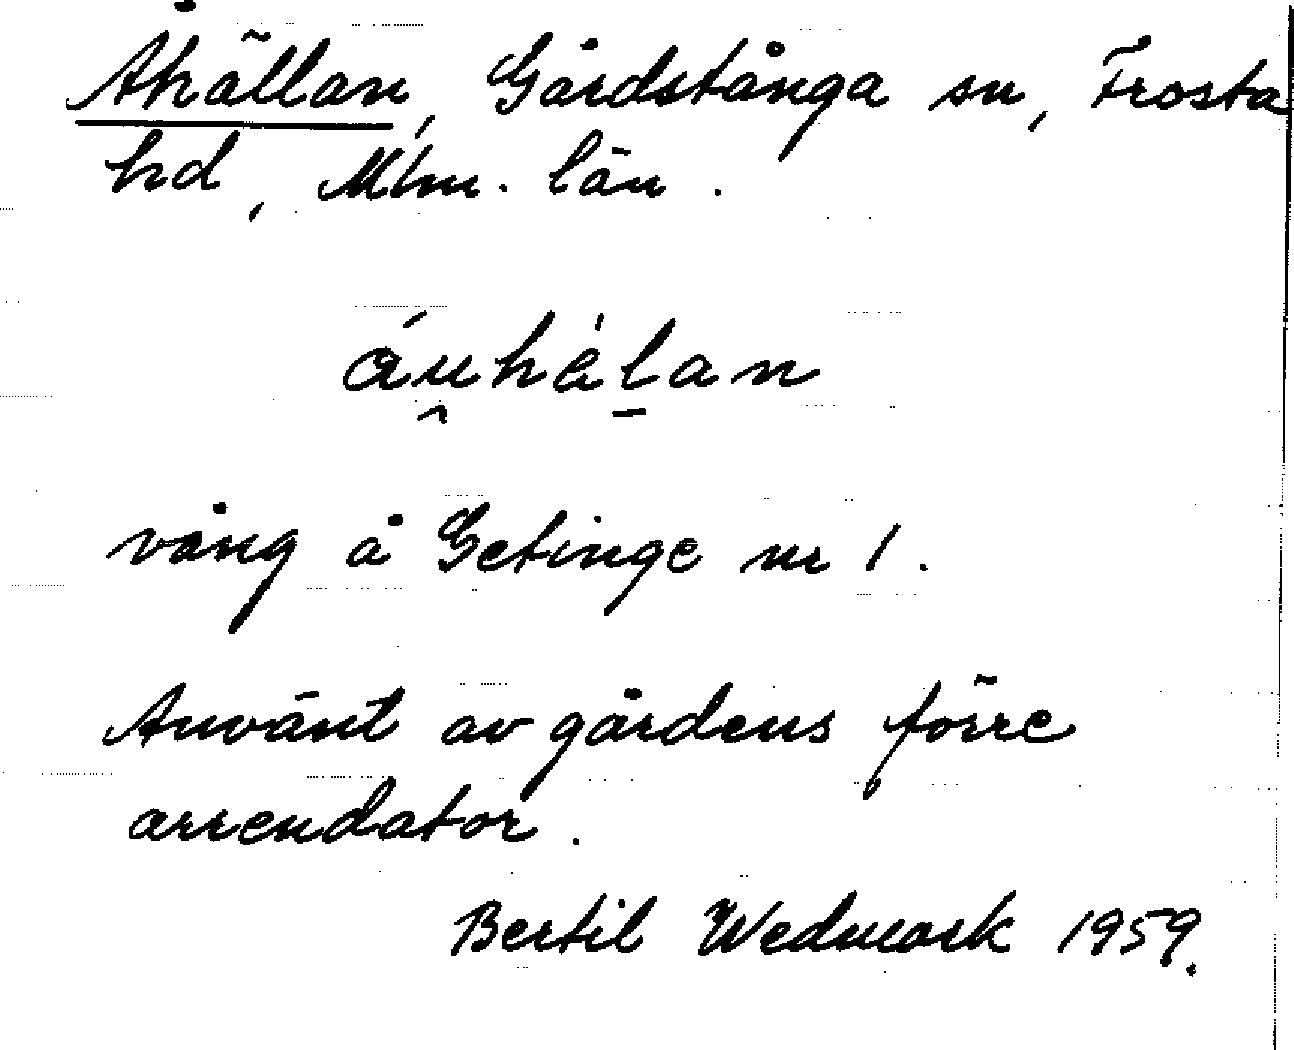 Åhällan, Gårdstånga sn, Frosta
hd, Mlm. län.
áu̯hàl̠an
vång å Getinge nr 1.
Använt av gårdens förre
arrendator.
Bertil Wedmark 1959.